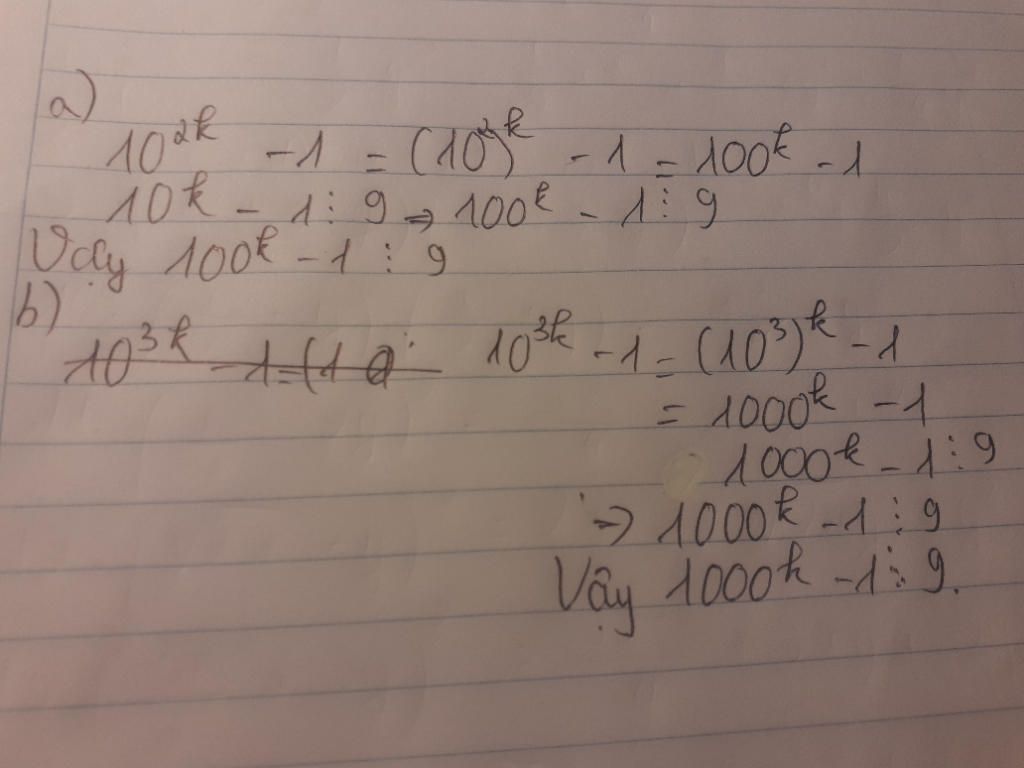 a)
10²ᵏ - 1 = (10²)ᵏ - 1 = 100ᵏ - 1
10ᵏ - 1 ⋮ 9 ⇒ 100ᵏ - 1 ⋮ 9
Vậy 100ᵏ - 1 ⋮ 9
b)
10³ᵏ - 1 = (10 10³ᵏ - 1 = (10³)ᵏ - 1
= 1000ᵏ - 1
1000ᵏ - 1 ⋮ 9
→ 1000ᵏ - 1 ⋮ 9
Vậy 1000ᵏ - 1 ⋮ 9.